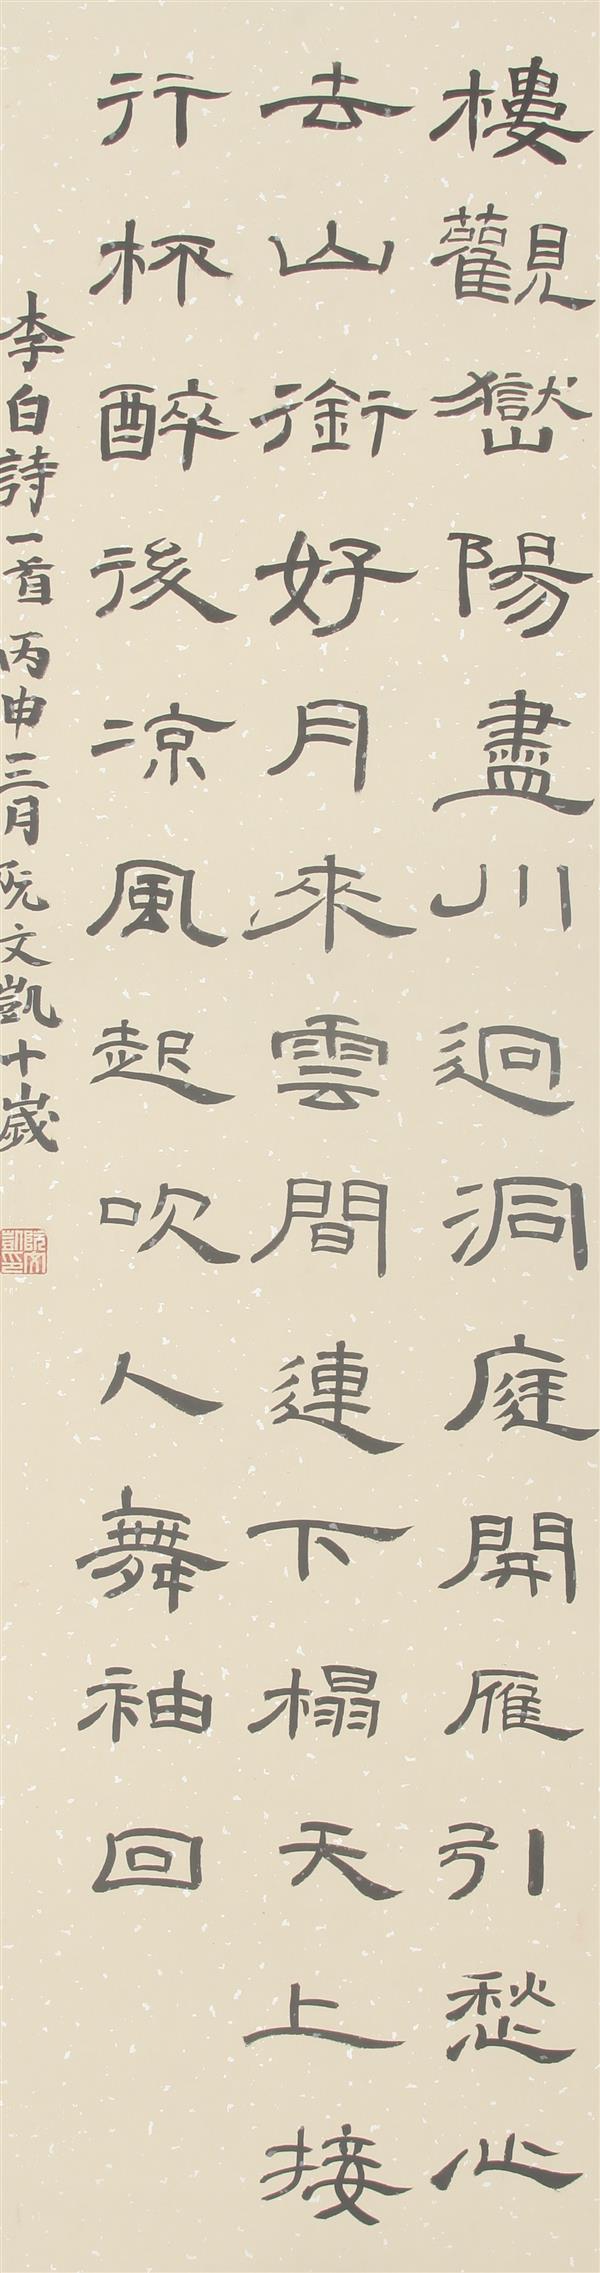 樓觀嶽陽盡川逈洞庭開雁引愁心
去山銜好月來雲間連下榻天上接
行杯醉後凉風起吹人舞袖回
李白詩一首丙申三月阮文凱十歲
阮文凱印